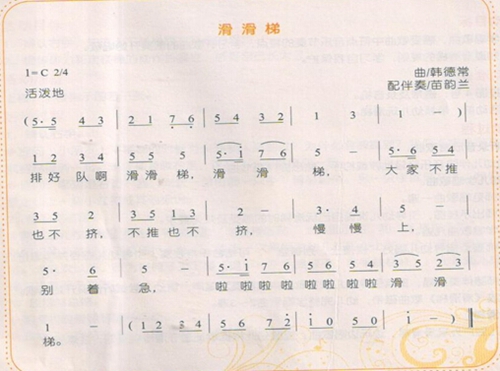 滑滑梯
1=C 2/4
曲/韩德常
活泼地
配伴奏/苗韵兰
(5·5 4 3 | 2 1 7 6 | 5 4 3 2 | 1 3 | 1 - ) |
1 2 3 4 | 5 5 5 | 5· i 7 6 | 5 - | 5·6 5 4 |
排好队啊 滑滑梯, 滑 滑 梯, 大家不推
3 5 2 | 3 5 1 3 | 2 - | 3· 4 | 5 - |
也不挤, 不推也不 挤, 慢慢 上,
5· 6 | 5 - | 5· i 7 6 | 5 6 5 4 | 3 5 2 3 |
别 着 急, 啦 啦啦啦 啦啦啦啦 滑 滑
1 - | (1 2 3 4 | 5 6 7 2 | i 0 5 0 | i - ) ‖
梯。